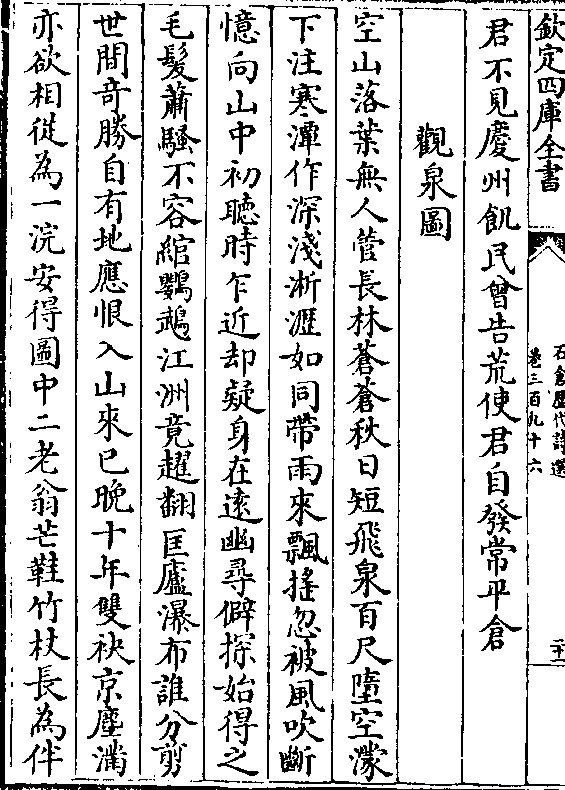 欽定四庫全書
石倉歷代詩選
卷三百九十六
二十二
君不見慶州飢民曾告荒使君自發常平倉
觀泉圖
空山落葉無人管長林蒼蒼秋日短飛泉百尺墮空濛
下注寒潭作深淺淅瀝如同帶雨來飄搖忽被風吹斷
憶向山中初聽時乍近却疑身在遠幽尋僻探始得之
毛髮蕭騷不容綰鸚鵡江洲竟趯翻匡廬瀑布誰分剪
世間竒勝自有地應恨入山來已晚十年雙袂京塵滿
亦欲相從為一浣安得圖中二老翁芒鞋竹杖長為伴